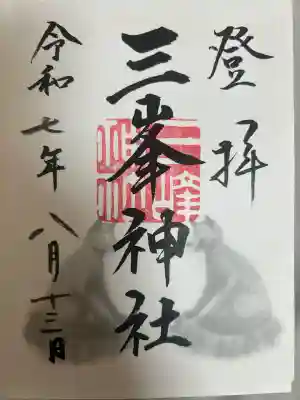 登拝
三峯神社
令和七年八月十三日